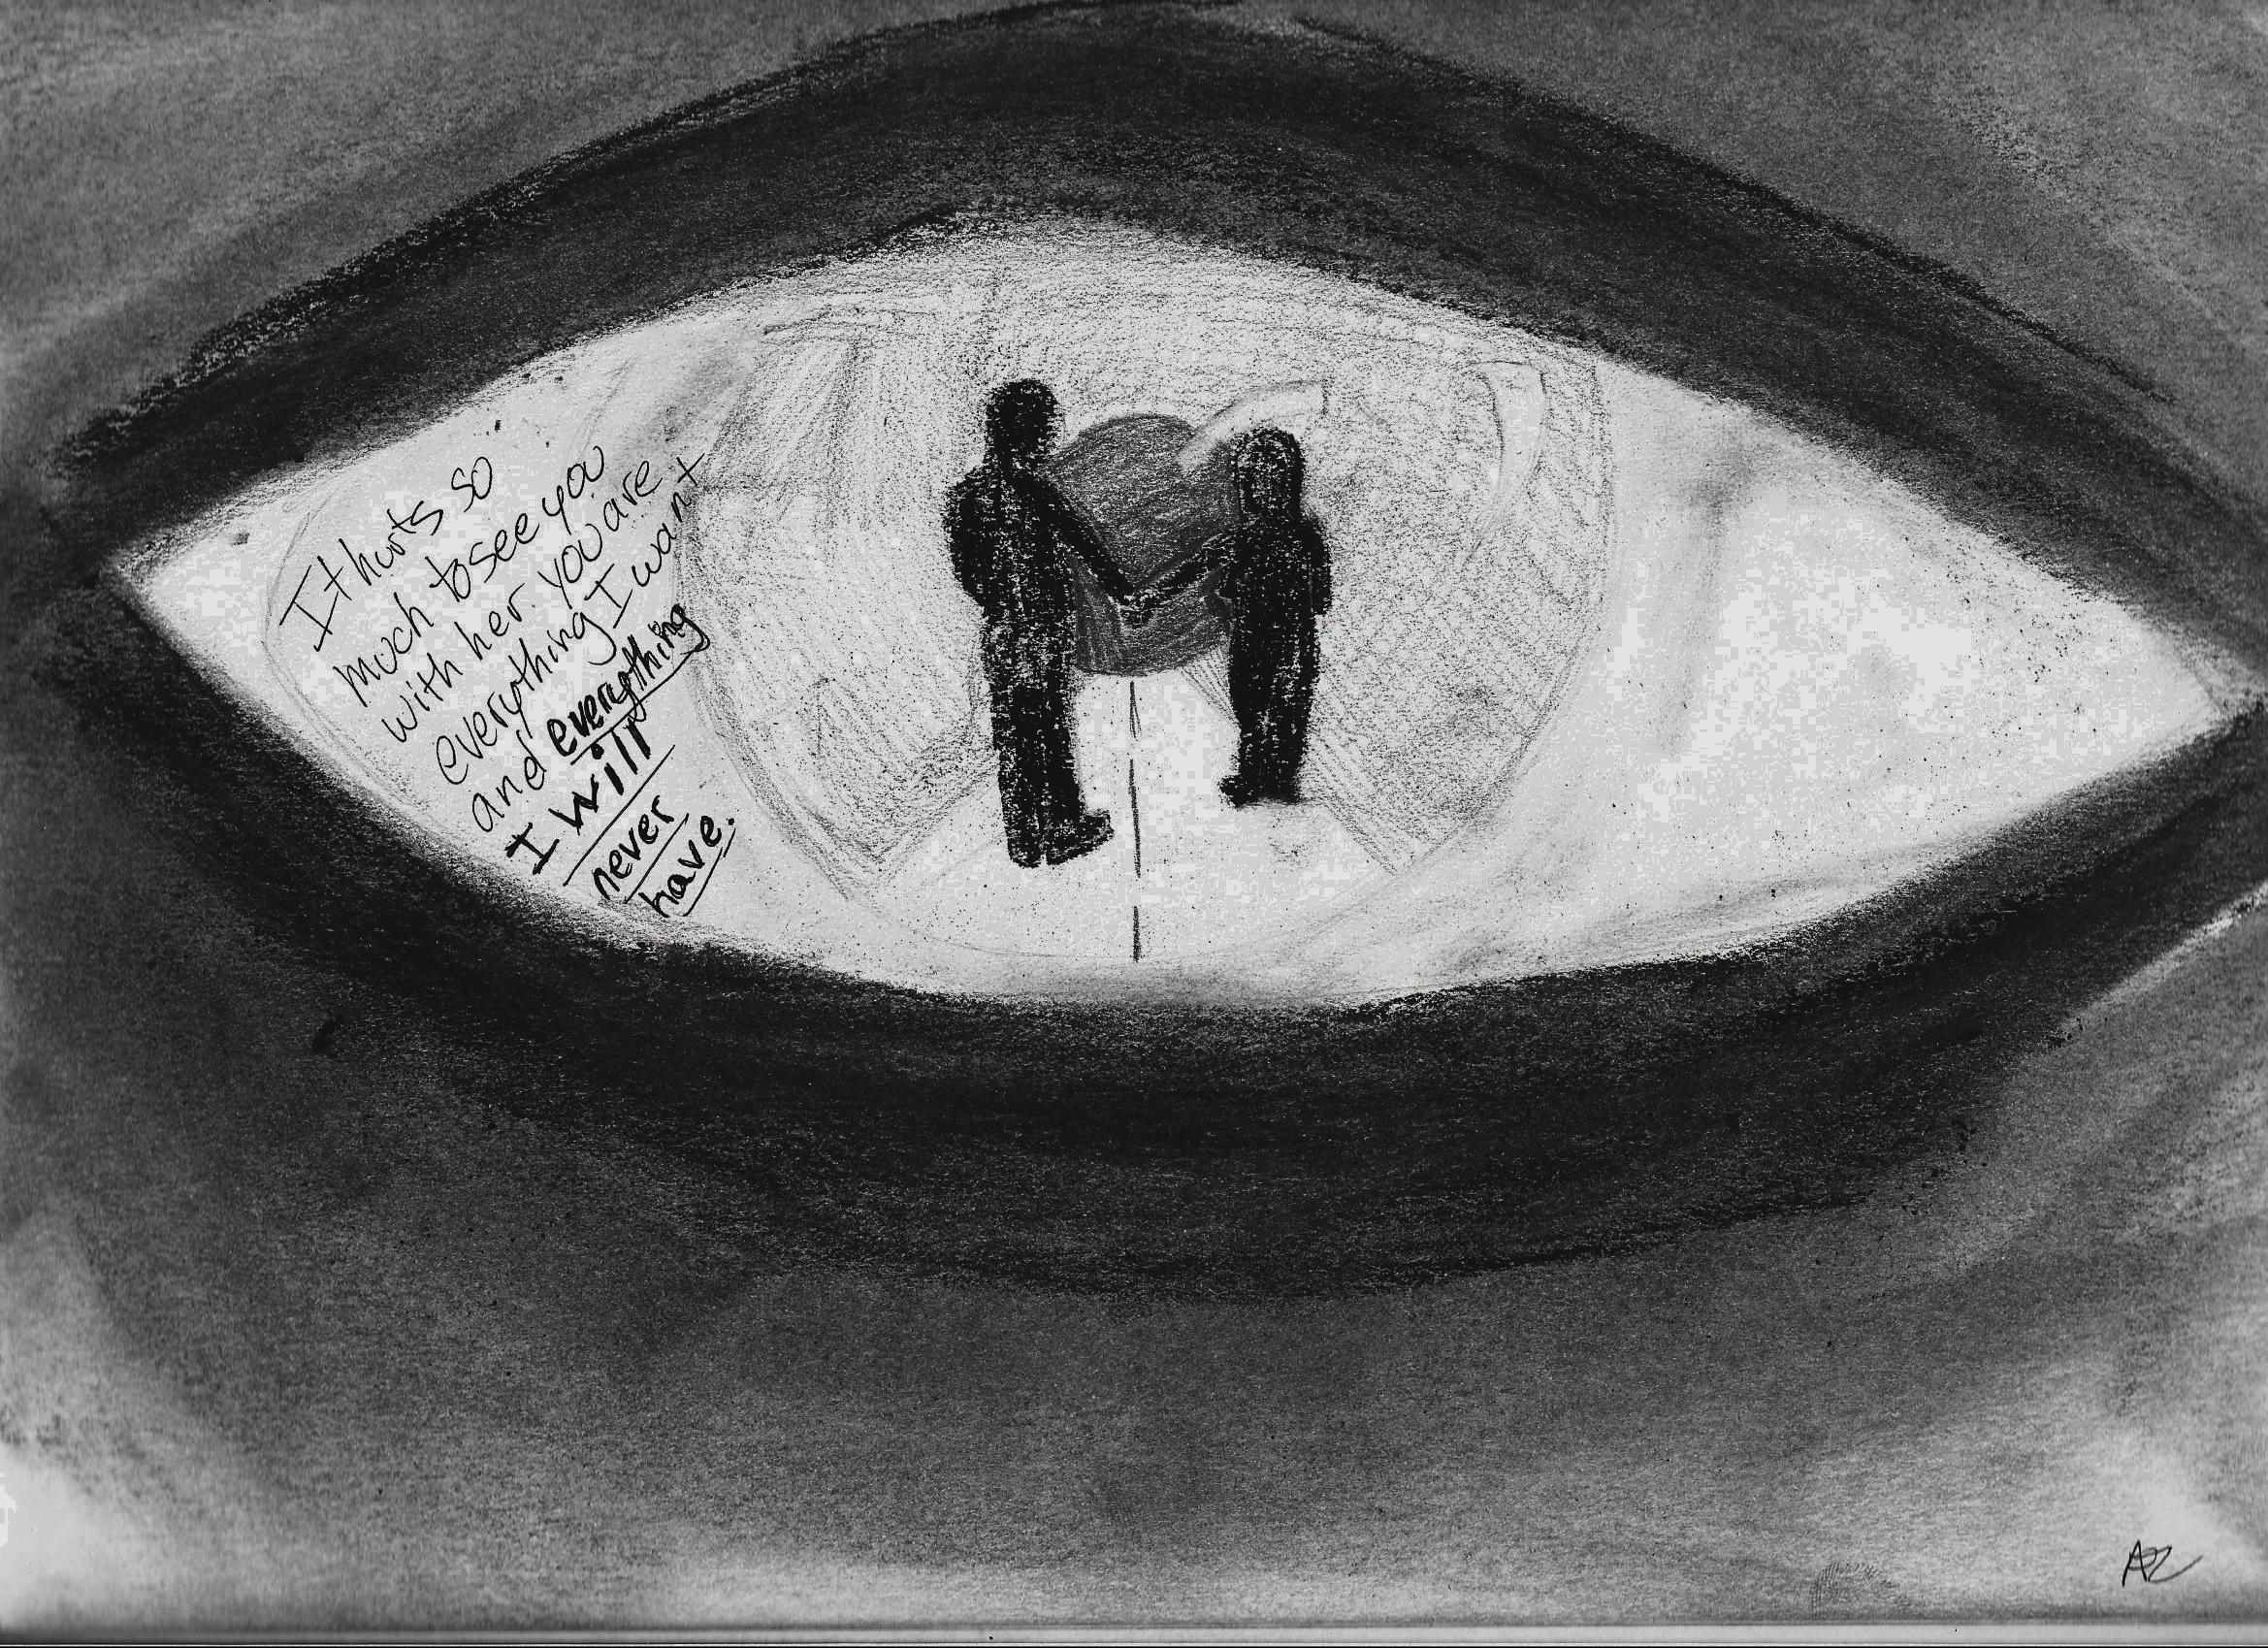 It hurts so
much to see you
with her. you are
everything I want
and everything
I will
never
have.